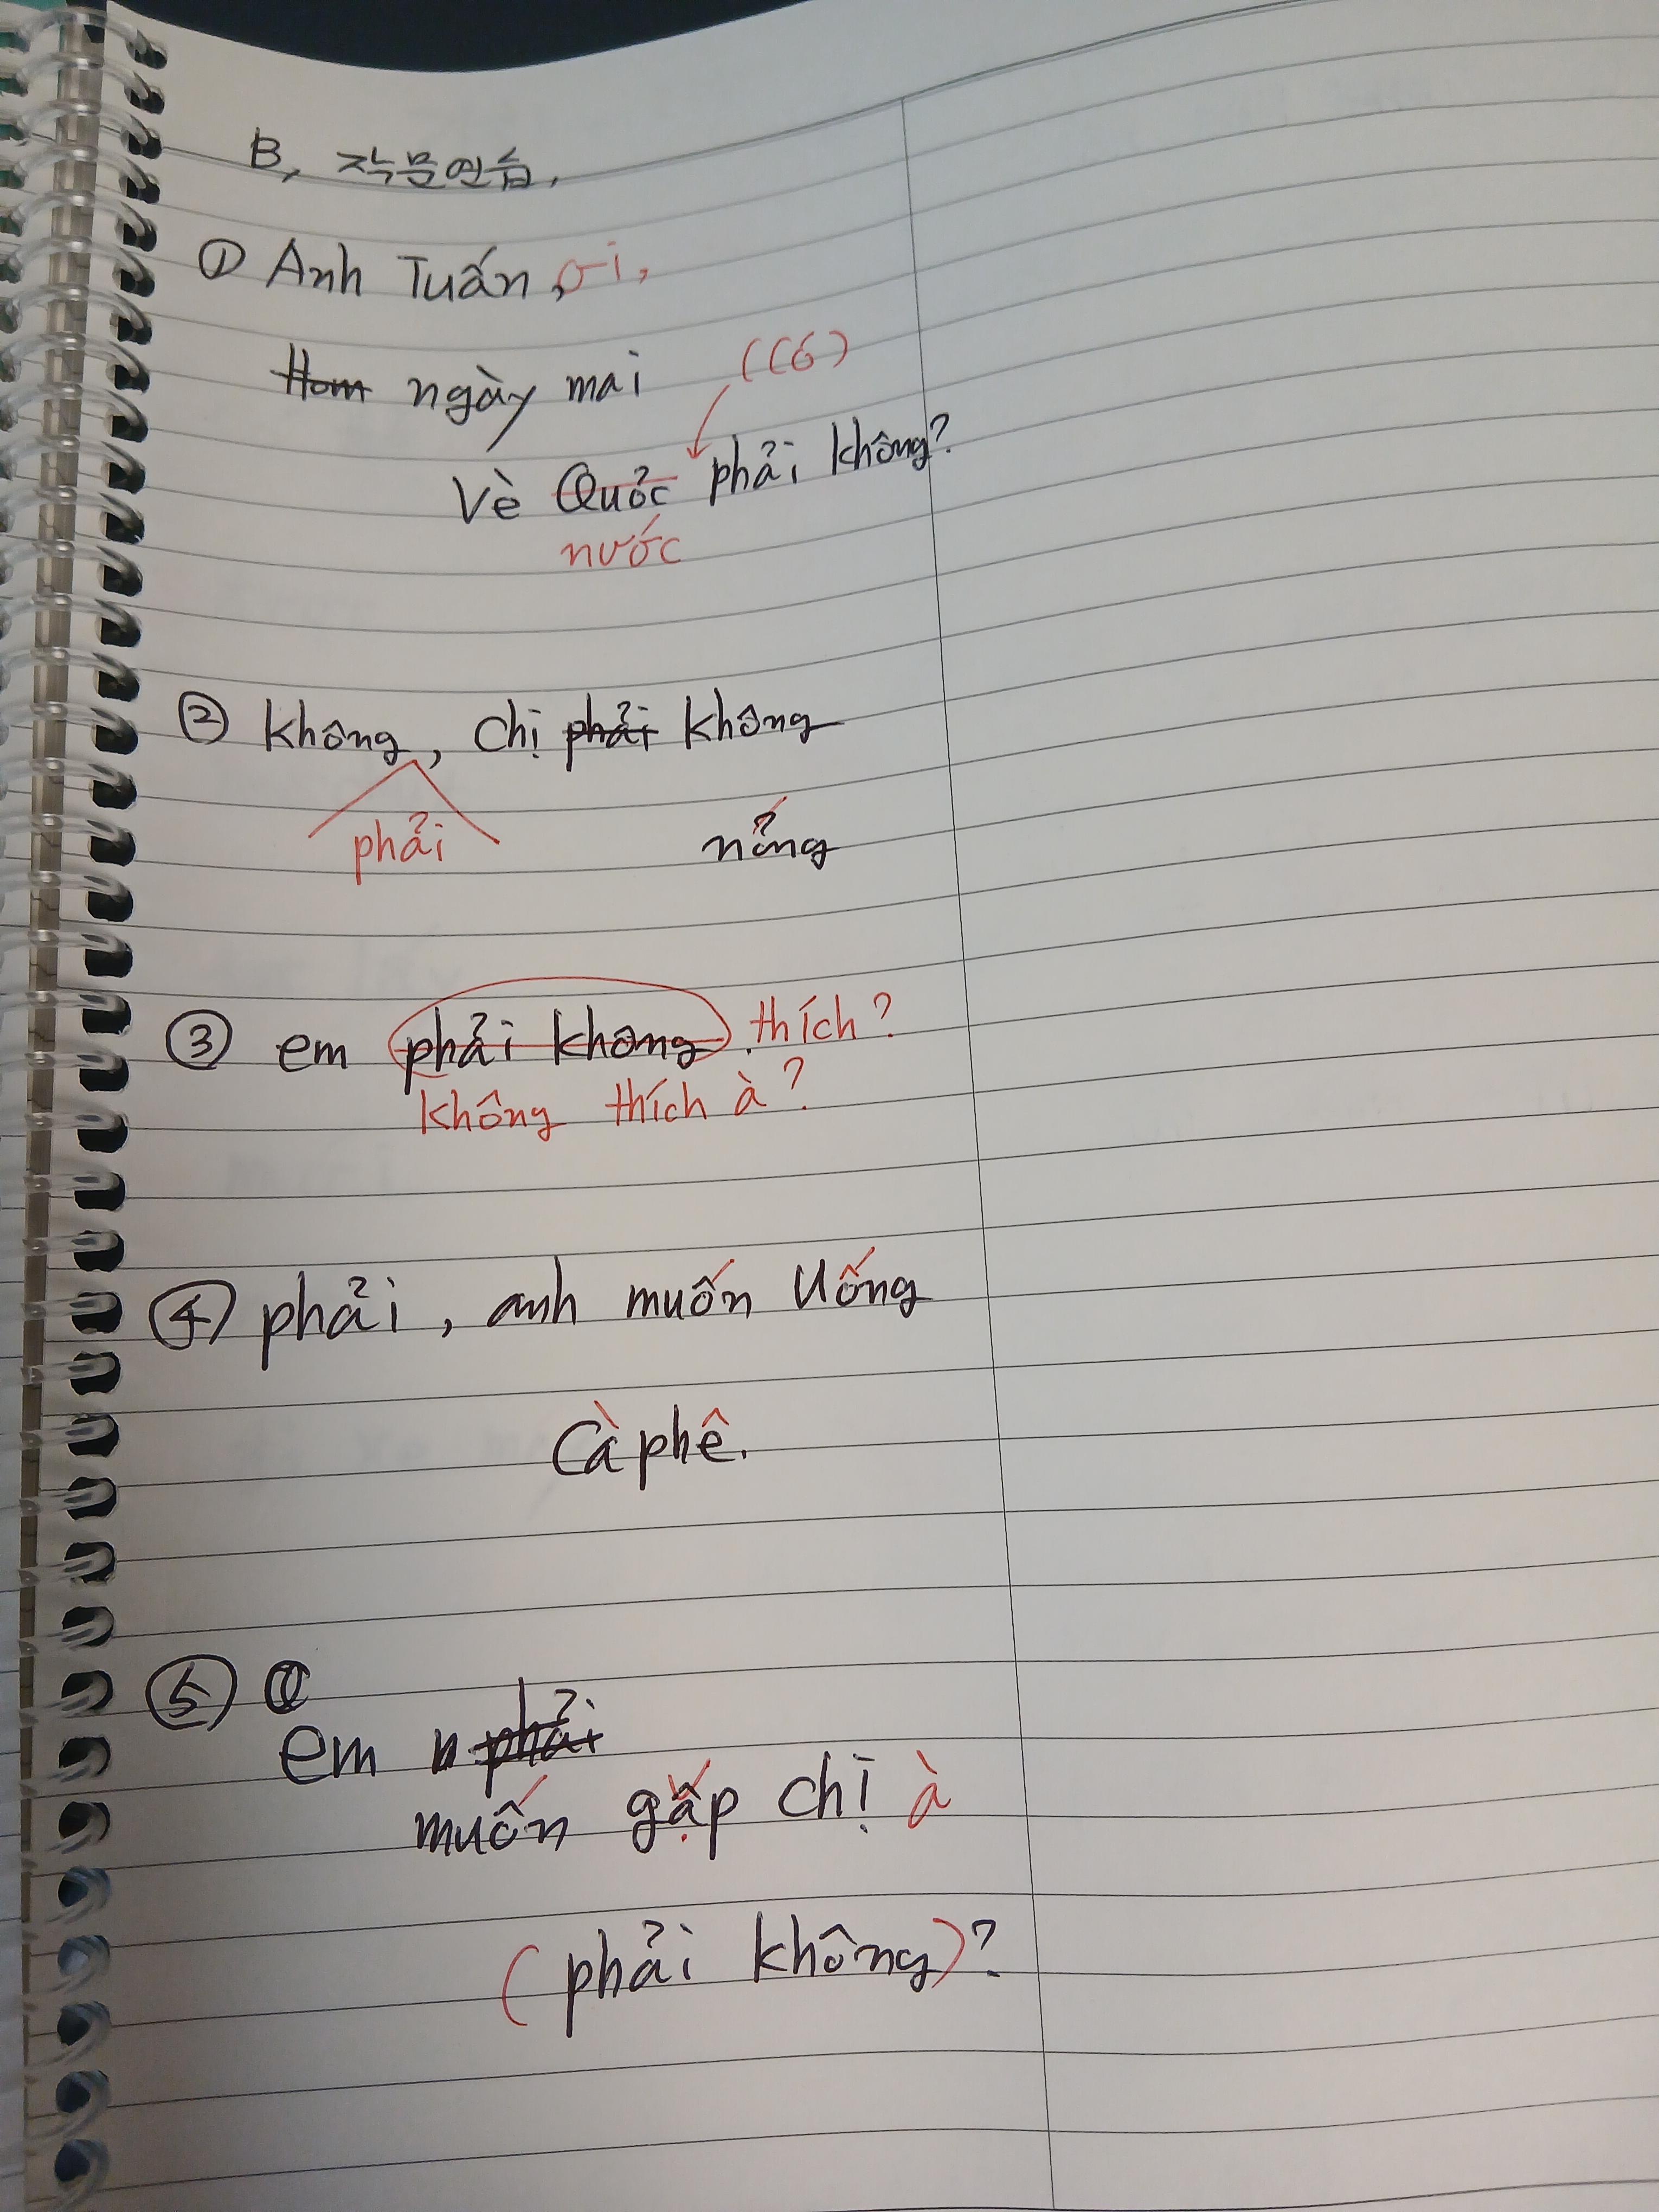 B, 작문연습,
① Anh Tuấn, ơi,
Hom ngày mai (có)
Vè Quốc phải không?
nước
② không, chị phải không
phải nống
③ em phải không thích?
không thích à?
④ phải, anh muốn uống
Cà phê.
⑤
em phải
muốn gặp chị à
(phải không)?